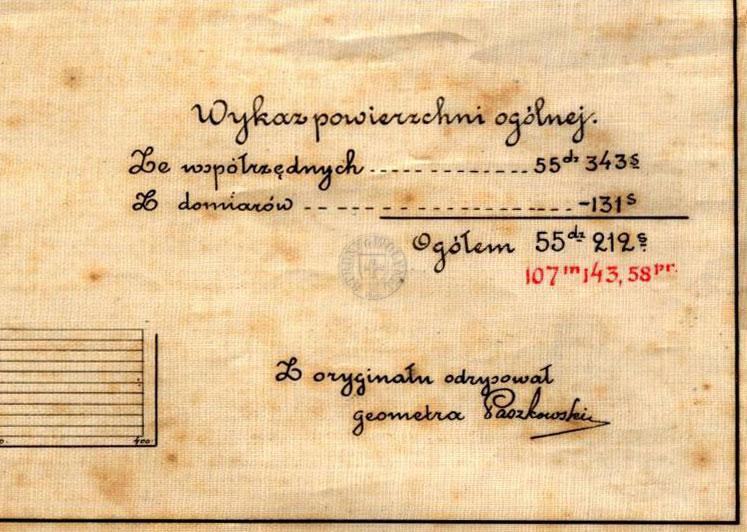 Wykaz powierzchni ogólnej.
Ze współrzędnych .................. 55 dz 343 s
Z domiarów ------------------ -131 s
Ogółem 55 dz 212 s
107 m 143,58 pr.
Z oryginału odrysował
geometra Paszkowski
400